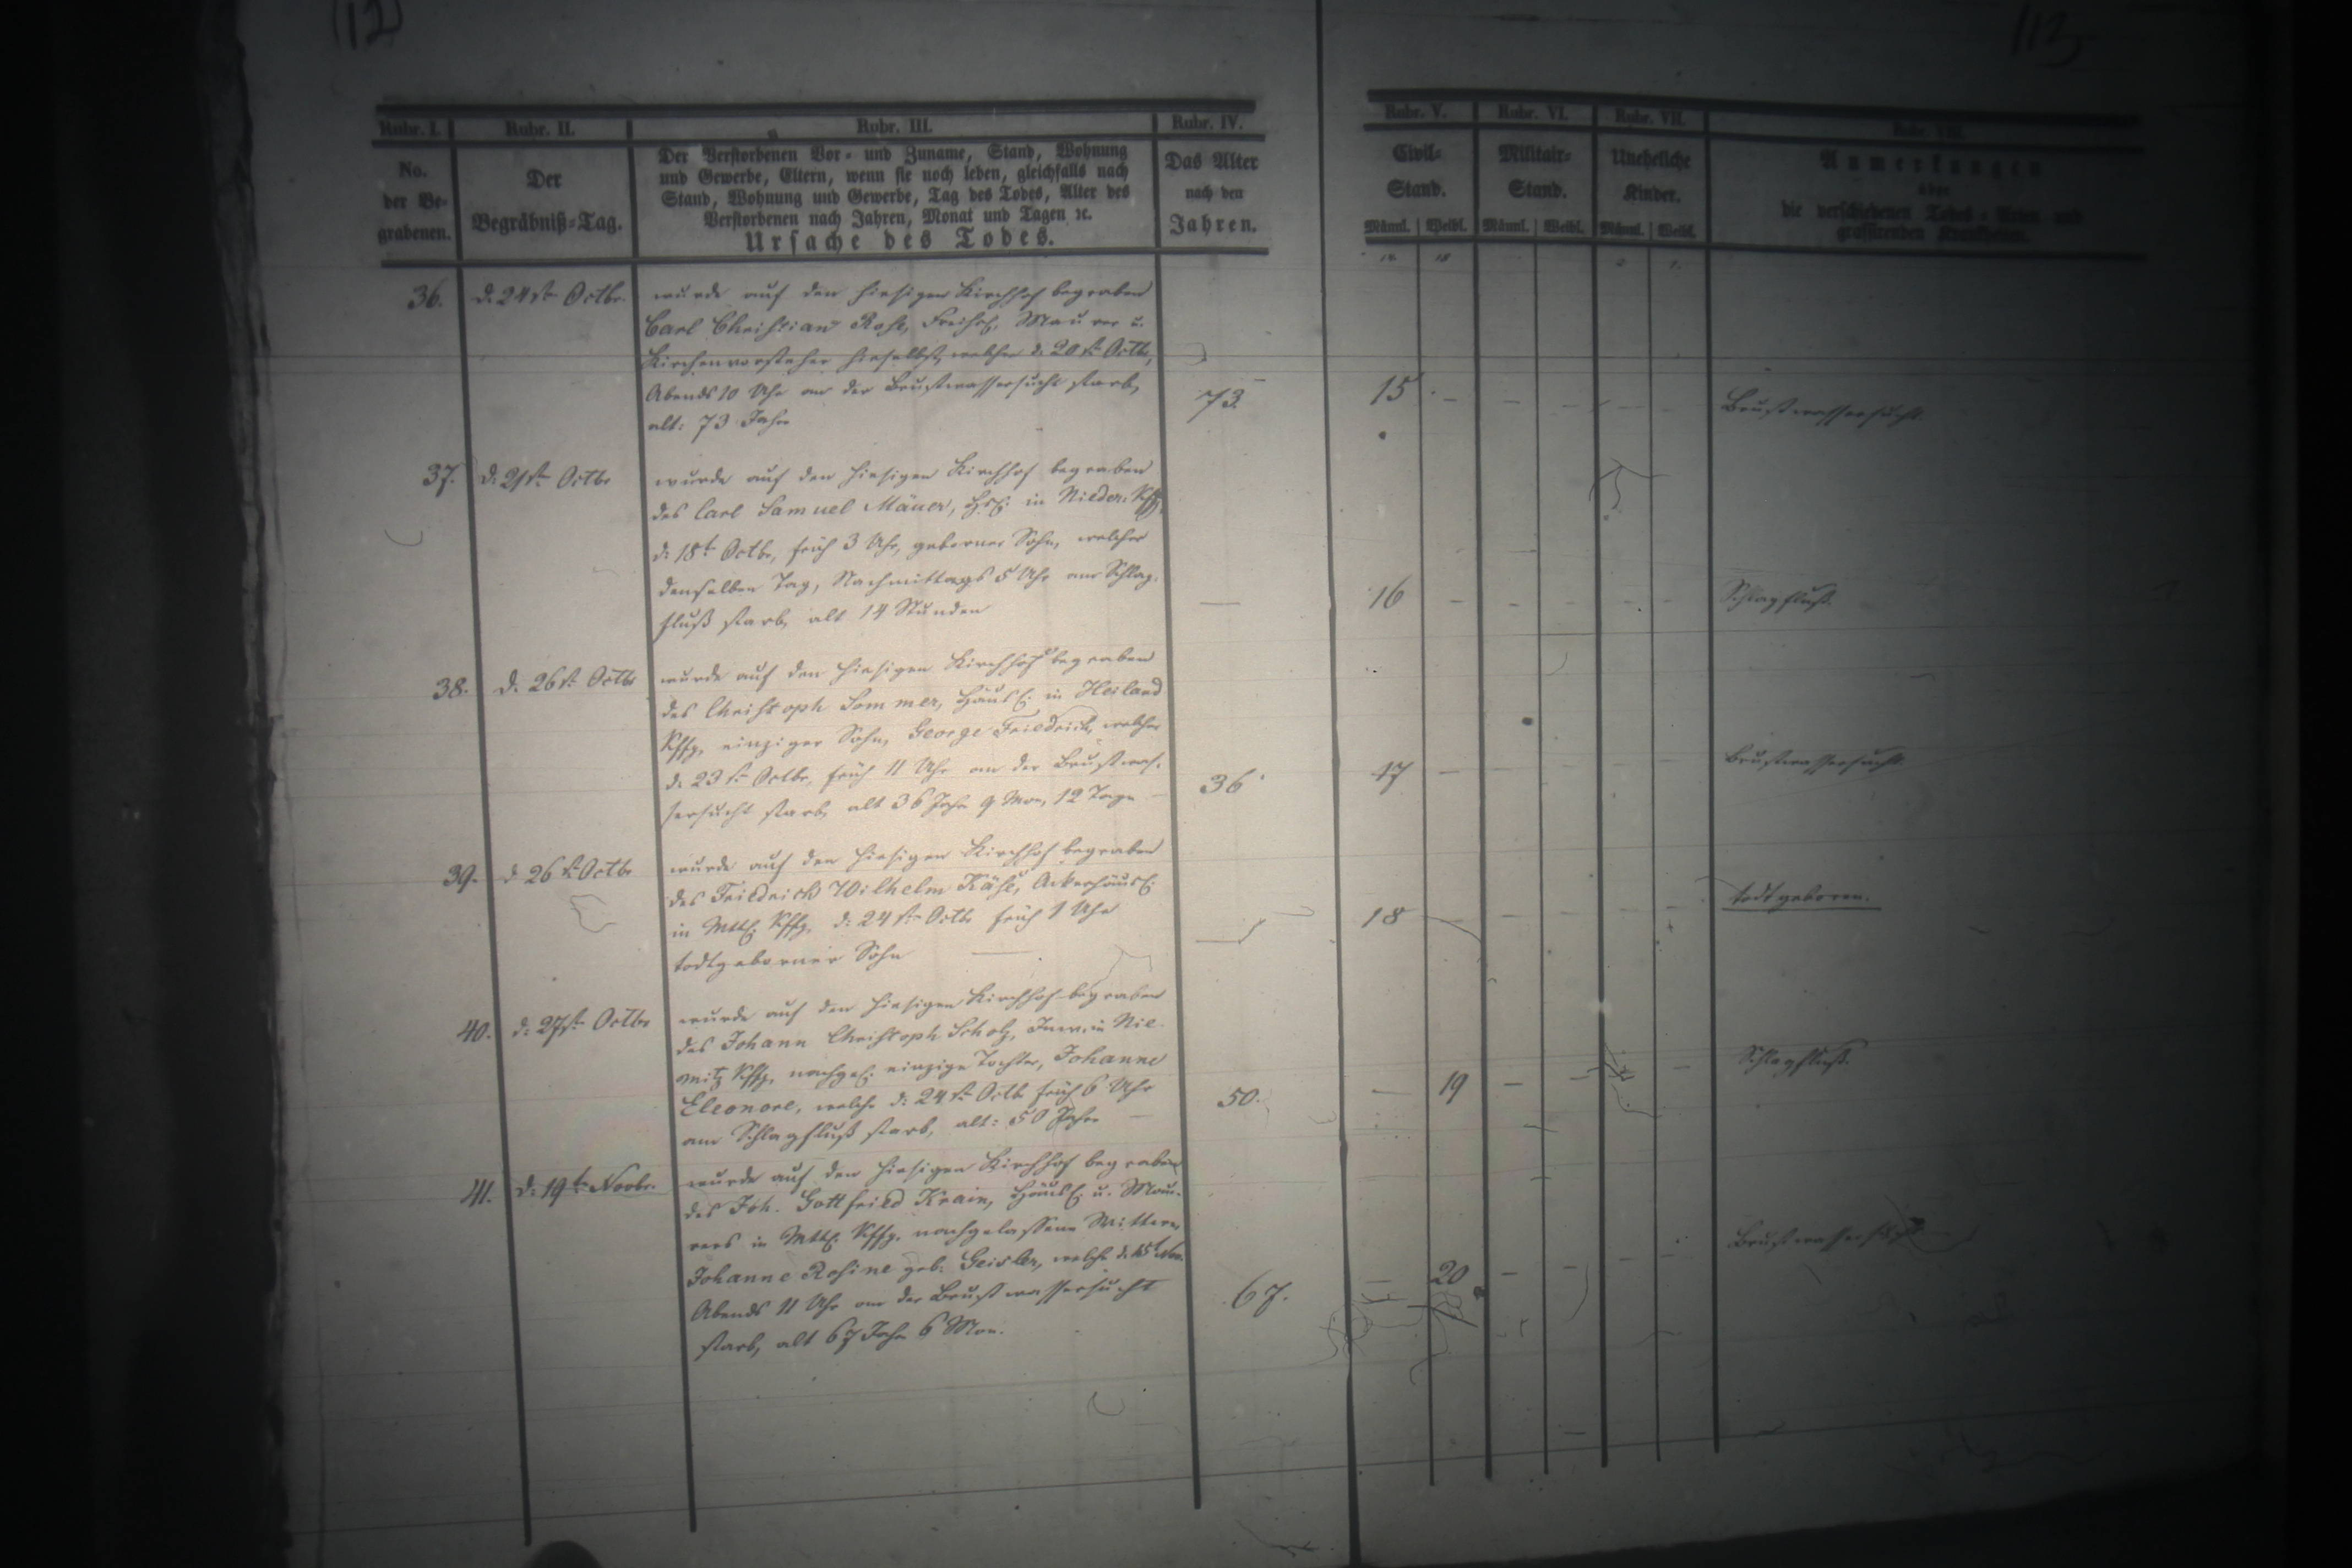 112
113
Rubr. I.
Rubr. II.
Rubr. III.
Rubr. IV.
No.
der Be-
grabenen.
Der
Begräbniß-Tag.
Der Verstorbenen Vor- und Zuname, Stand, Wohnung
und Gewerbe, Eltern, wenn sie noch leben, gleichfalls nach
Stand, Wohnung und Gewerbe, Tag des Todes, Alter des
Verstorbenen nach Jahren, Monat und Tagen ꝛc.
Ursache des Todes.
Das Alter
nach den
Jahren.
Rubr. V.
Rubr. VI.
Rubr. VII.
Rubr. VIII.
Civil-
Stand.
Männl. Weibl.
Militair-
Stand.
Männl. Weibl.
Uneheliche
Kinder.
Männl. Weibl.
Anmerkungen
über
die verschiedenen Todes-Arten und
grassirenden Krankheiten.
14. 18
36. d. 24st. Octbr.
wurde auf den hiesigen Kirchhof begraben
Carl Christian Maurer u.
Kirchenvorsteher hieselbst, welcher d. 20st. Octb,
Abends 10 Uhr an der Brustwassersucht starb,
alt: 73 Jahr
73. 15 Brustwassersucht.
37. d. 21st. Octbr
wurde auf den hiesigen Kirchhof begraben
des Carl Samuel Mäuer, in Nieder-Kffg,
d. 18t Octbr, früh 3 Uhr, geborner Sohn, welcher
denselben Tag, Nachmittags 5 Uhr am Schlag-
fluß starb, alt 14 Stunden
— 16 Schlagfluß.
38. d. 26st. Octbr
wurde auf den hiesigen Kirchhof begraben
des Christoph Sommer, Häusl. in Heiland
Kffg, einziger Sohn, George Friedrich, welcher
d. 23st. Octbr, früh 11 Uhr an der Brustwas-
sersucht starb, alt 36 Jahr 9 Mon, 12 Tage
36 17 Brustwassersucht.
39. d 26st. Octbr
wurde auf den hiesigen Kirchhof begraben
des Friedrich Wilhelm Käse, Ackerhäusl.
in Mttl. Kffg, d. 24st. Octb früh 1 Uhr
todtgeborner Sohn —
— 18 todtgeboren.
40. d. 27st. Octbr
wurde auf den hiesigen Kirchhof begraben
des Johann Christoph Scholz, Inw. in Nie-
mitz Kffg, nachgel. einzige Tochter, Johanne
Eleonore, welche d. 24st. Octb früh 6 Uhr
am Schlagfluß starb, alt: 50 Jahr —
50. 19 Schlagfluß.
41. d. 19t. Novbr.
wurde auf den hiesigen Kirchhof begraben
des Joh. Gottfried Krain, Häusl. u. Mau-
rers in Mttl. Kffg. nachgelassene Wittwe,
Johanne Rosine geb. Geisler, welche d. 15t Nov.
Abends 11 Uhr an der Brustwassersucht
starb, alt 67 Jahr 6 Mon.
67. 20 Brustwassersucht